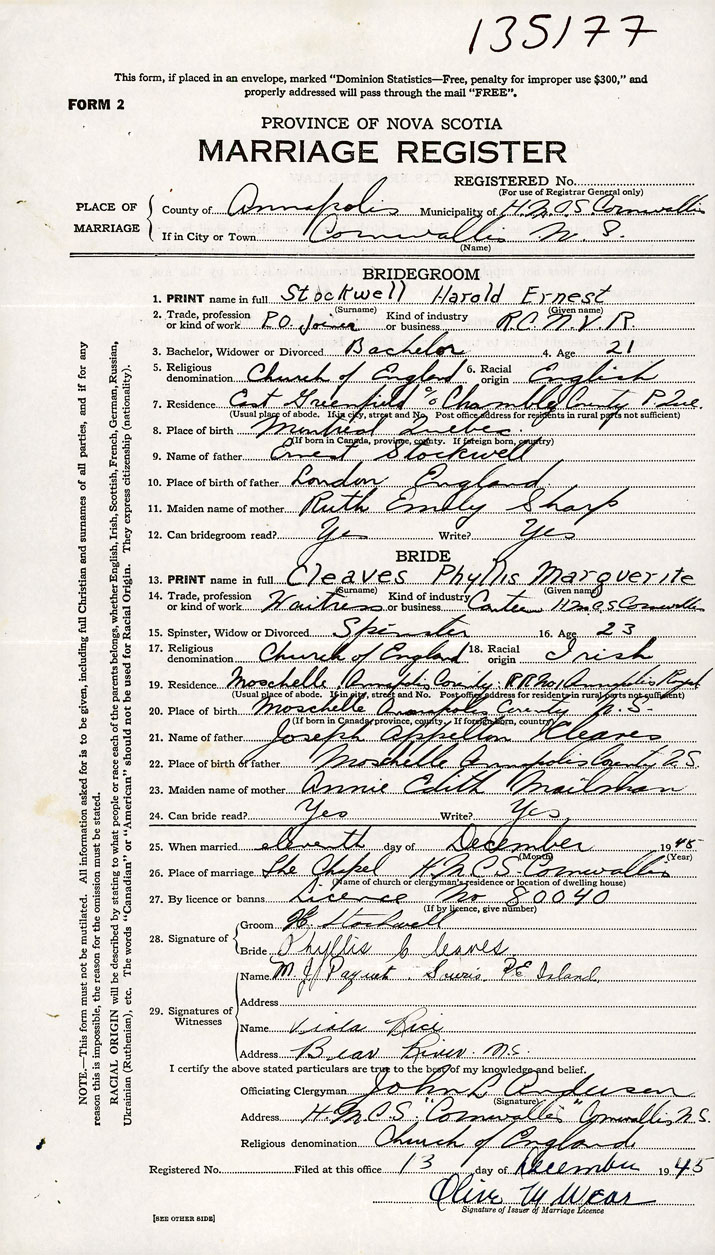 135177
This form, if placed in an envelope, marked "Dominion Statistics—Free, penalty for improper use $300," and
properly addressed will pass through the mail "FREE".
FORM 2
PROVINCE OF NOVA SCOTIA
MARRIAGE REGISTER
REGISTERED No.
(For use of Registrar General only)
PLACE OF MARRIAGE
County of Annapolis Municipality of H.M.C.S. Cornwallis
If in City or Town Cornwallis N. S.
(Name)
BRIDEGROOM
1. PRINT name in full Stockwell Harold Ernest
(Surname) (Given name)
2. Trade, profession or kind of work P.O. Joiner Kind of industry or business R.C.N.V.R.
3. Bachelor, Widower or Divorced Bachelor 4. Age 21
5. Religious denomination Church of England 6. Racial origin English
7. Residence East Greenfield % Chambly County P. Que.
(Usual place of abode. If in city, street and No. Post office address for residents in rural parts not sufficient)
8. Place of birth Montreal Quebec.
(If born in Canada, province, county. If foreign born, country)
9. Name of father Ernest Stockwell
10. Place of birth of father London England
11. Maiden name of mother Ruth Emily Sharp
12. Can bridegroom read? Yes Write? Yes
BRIDE
13. PRINT name in full Cleaves Phyllis Marguerite
(Surname) (Given name)
14. Trade, profession or kind of work Waitress Kind of industry or business Canteen HMCS Cornwallis
15. Spinster, Widow or Divorced Spinster 16. Age 23
17. Religious denomination Church of England 18. Racial origin Irish
19. Residence Moschelle, Annapolis County. RR No 1 Annapolis Royal
(Usual place of abode. If in city, street and No. Post office address for residents in rural parts not sufficient)
20. Place of birth Moschelle Annapolis County N.S.
(If born in Canada, province, county. If foreign born, country)
21. Name of father Joseph Appelton Cleaves
22. Place of birth of father Moschelle Annapolis County N.S.
23. Maiden name of mother Annie Edith Mailman
24. Can bride read? Yes Write? Yes
25. When married eleventh day of December 1945
(Month) (Year)
26. Place of marriage The Chapel H.M.C.S. Cornwallis
(Name of church or clergyman's residence or location of dwelling house)
27. By licence or banns Licence No 80040
(If by licence, give number)
28. Signature of
Groom HE Stockwell
Bride Phyllis Cleaves
29. Signatures of Witnesses
Name M. J. Paquet. Souris, P.E. Island.
Address
Name Viola Rice
Address Bear River. N.S.
I certify the above stated particulars are true to the best of my knowledge and belief.
Officiating Clergyman John L Anderson
(Signature)
Address H.M.C.S. "Cornwallis" Cornwallis N.S.
Religious denomination Church of England
Registered No. Filed at this office 13 day of December 1945
Olive M Wear
Signature of Issuer of Marriage Licence
[SEE OTHER SIDE]
NOTE.—This form must not be mutilated. All information asked for is to be given, including full Christian and surnames of all parties, and if for any
reason this is impossible, the reason for the omission must be stated.
RACIAL ORIGIN will be described by stating to what people or race each of the parents belongs, whether English, Irish, Scottish, French, German, Russian,
Ukrainian (Ruthenian), etc. The words "Canadian" or "American" should not be used for Racial Origin. They express citizenship (nationality).